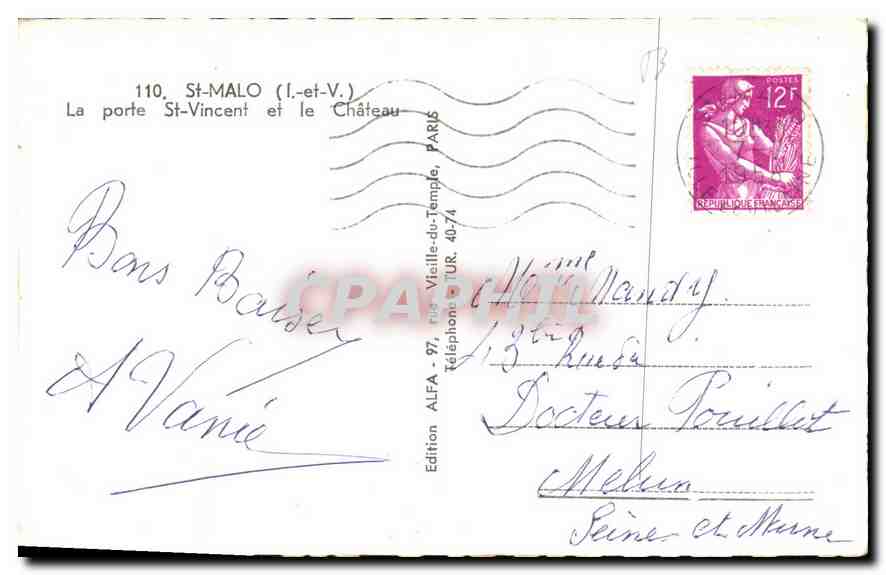 110. St-MALO (I.-et-V.)
La porte St-Vincent et le Château
Bons Baiser
A Vanié
Edition ALFA - 97, rue Vieille-du-Temple, PARIS
Téléphone - TUR. 40-74
CPAPHIL
POSTES
12F
RÉPUBLIQUE FRANÇAISE
Mme Mandry
13 bis Rue du
Docteur Pouillot
Melun
Seine et Marne